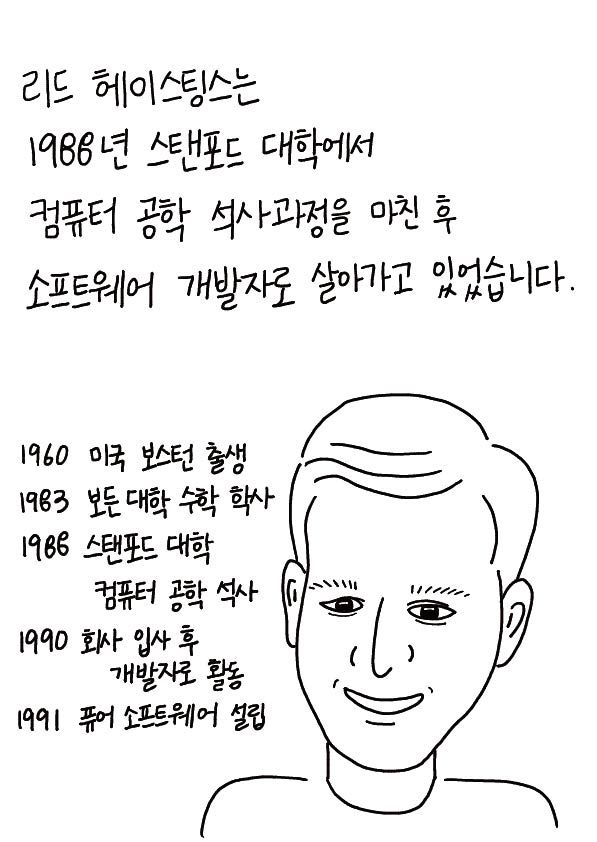 리드 헤이스팅스는
1988년 스탠포드 대학에서
컴퓨터 공학 석사과정을 마친 후
소프트웨어 개발자로 살아가고 있었습니다.
1960 미국 보스턴 출생
1983 보든 대학 수학 학사
1988 스탠포드 대학
컴퓨터 공학 석사
1990 회사 입사 후
개발자로 활동
1991 퓨어 소프트웨어 설립